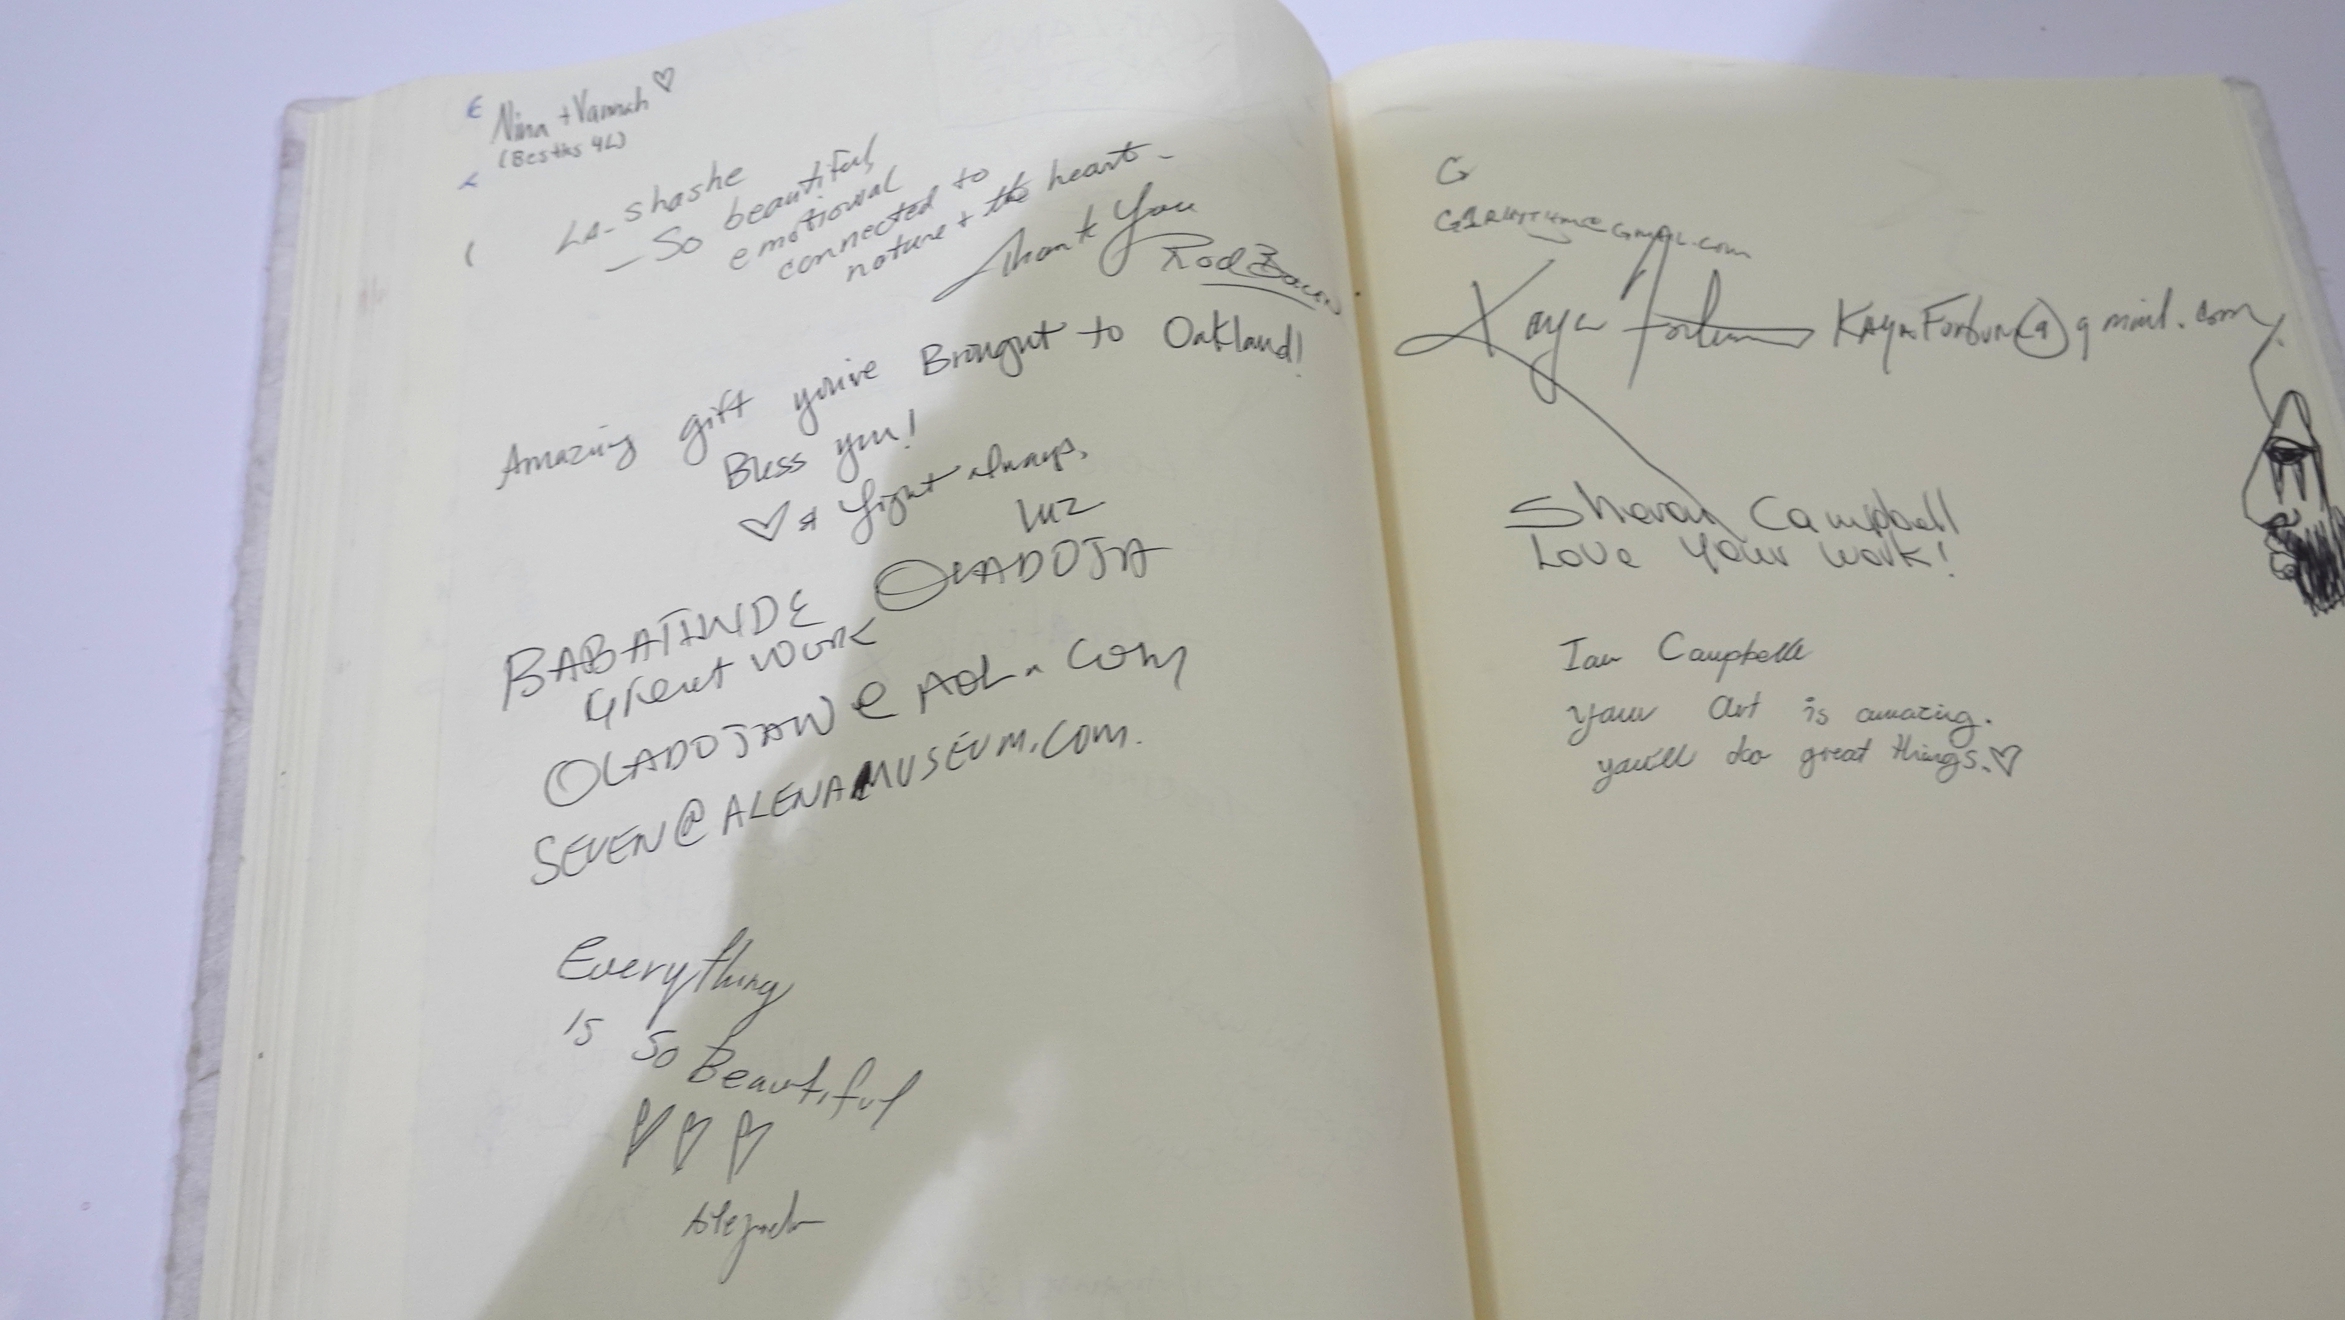 Nina + Vannah ♡
(Besties 4L)
LA-shashe
— So beautiful,
emotional
connected to
nature + the heart -
Thank You
Rod Bacon
Amazing gift you've Brought to Oakland!
Bless you!
♡ & light always,
luz
BABATUNDE OLADOJA
Great work
OLADOJAW@AOL.COM
SEVEN@ALENAMUSEUM.COM.
Everything
is so Beautiful
Alejandra
G
Kaya Fortune KAyaFortune@gmail.com
Sharon Campbell
Love Your work!
Ian Campbell
your art is amazing.
you'll do great things.♡